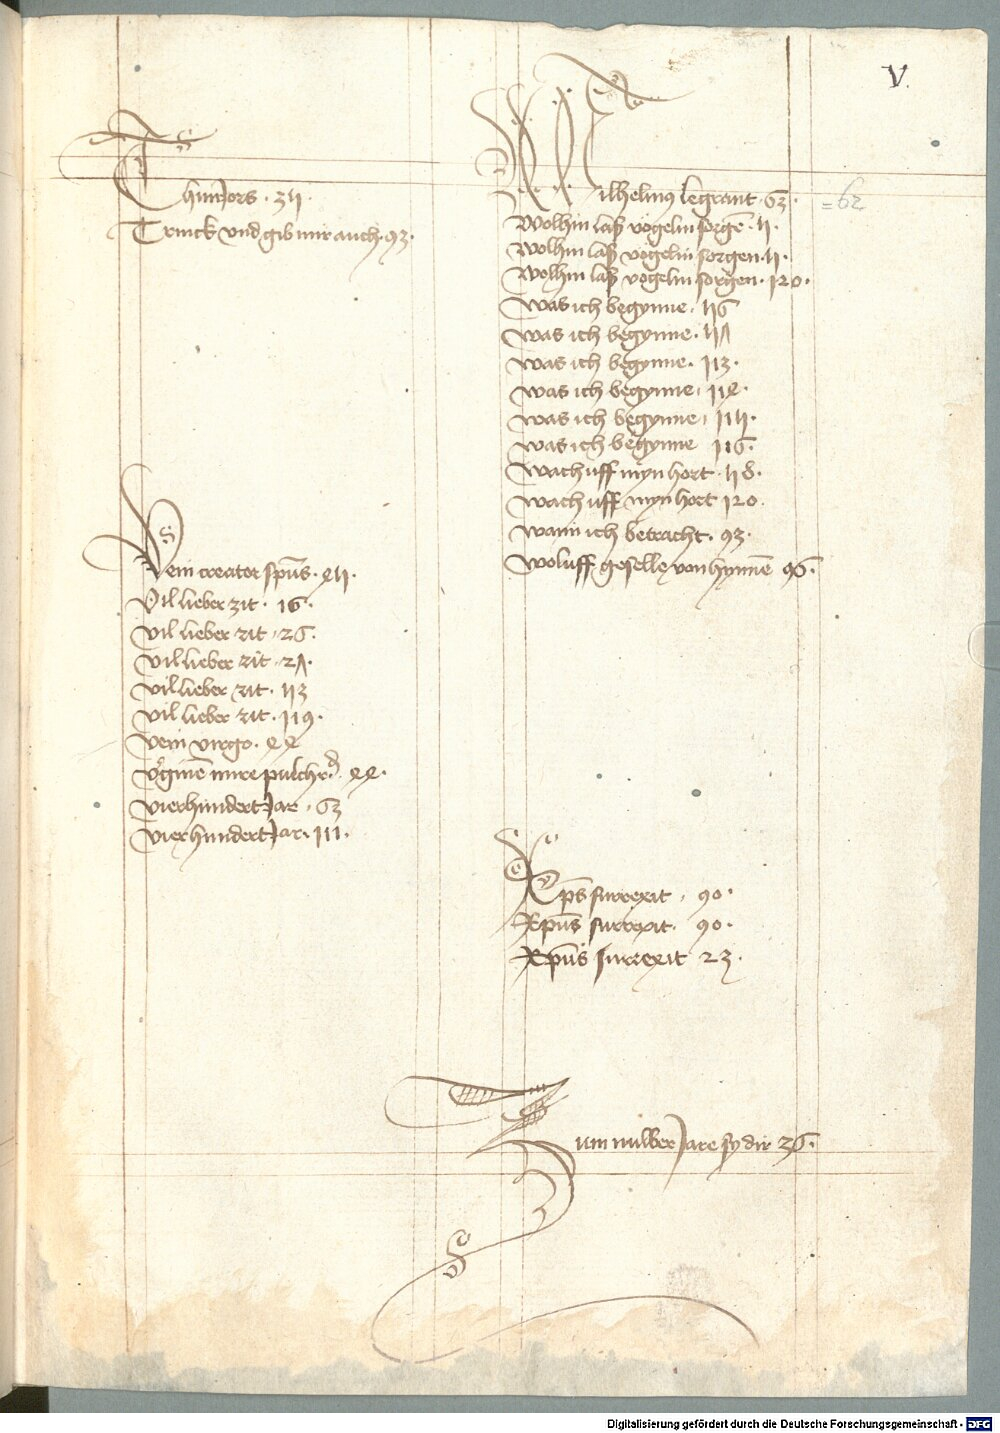 V
Thim Jors . 35 .
Trinck vnd gib mir auch . 93 .
Veni creator spūs . 45 .
Vil lieber zit . 16 .
Vil lieber zit . 26 .
Vil lieber zit . 27 .
Vil lieber zit . 53
Vil lieber zit . 119 .
Veni virgo . 44
v°ginē mire pulchrd . 44 .
vierhundert Jar . 63
vierhundert Jar . 111 .
Wilhelmus legrant . 63 .
= 62
Wolhin laß vögelin sorgē . 5 .
Wolhin laß vögelin sorgen . 5 .
Wolhin laß vögelin sorgen . 120 .
was ich begynne . 56
was ich begynne . 57
was ich begynne . 113 .
was ich begynne . 114 .
was ich begynne . 115 .
was ich begynne 116 .
wach uff myn hort . 58 .
wach uff myn hort 120 .
wann ich betracht . 93 .
woluff geselle von hynnē 96 .
Xp̄s surrexit . 90 .
Xpūs surrexit . 90 .
Xpūs surrexit 23 .
Zum nuwen Jare sy dir 36 .
Digitalisierung gefördert durch die Deutsche Forschungsgemeinschaft - DFG